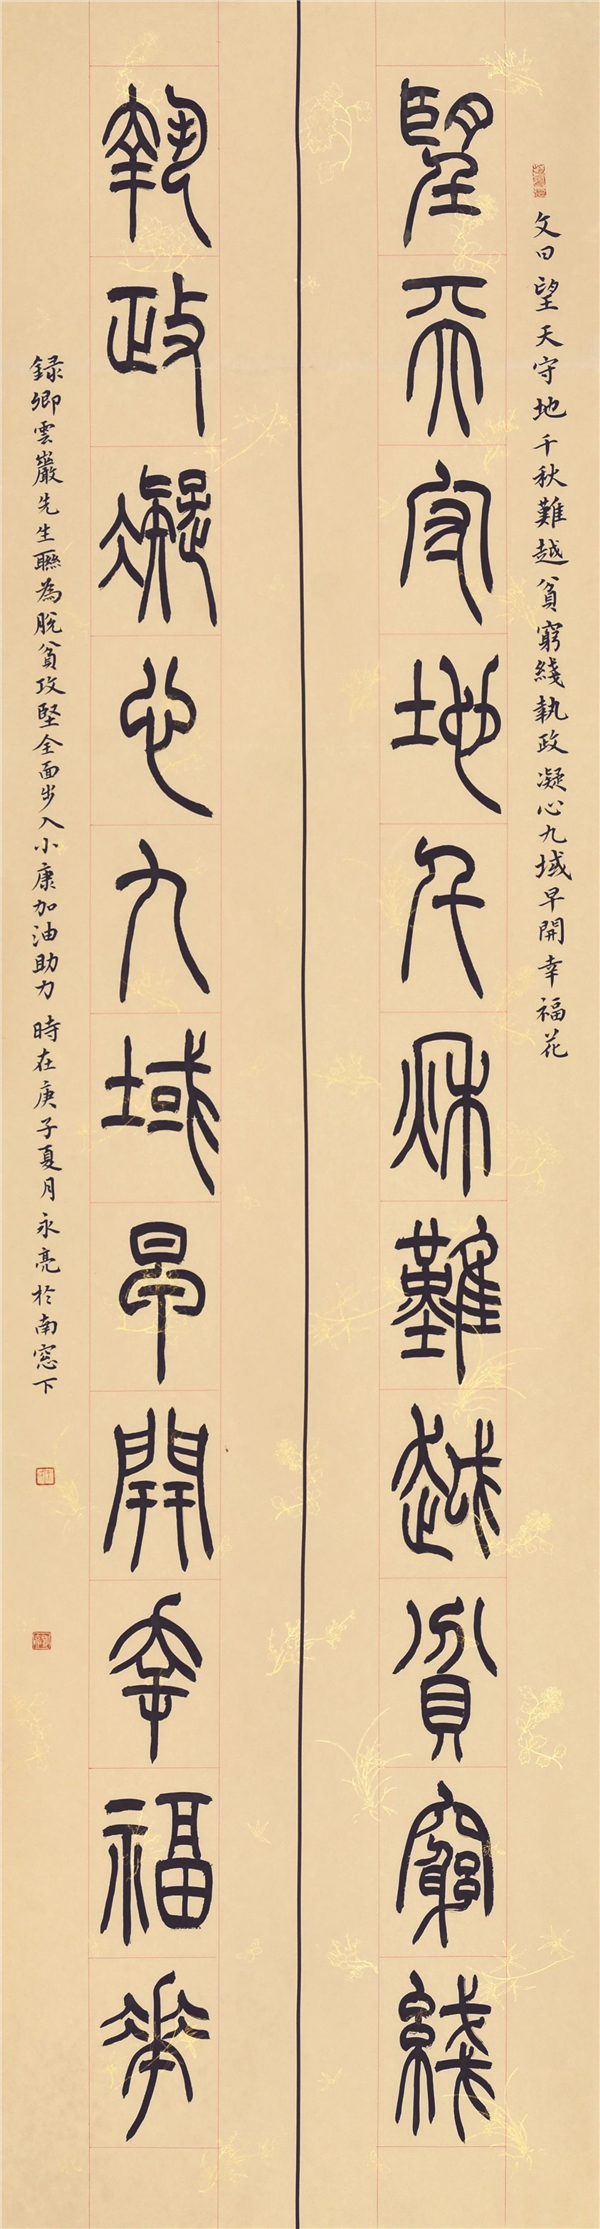 望天守地千秋難越貧窮綫
文曰望天守地千秋難越貧窮綫執政凝心九域早開幸福花
執政凝心九域早開幸福花
録卿雲巖先生聯為脫貧攻堅全面步入小康加油助力 時在庚子夏月永亮於南窓下